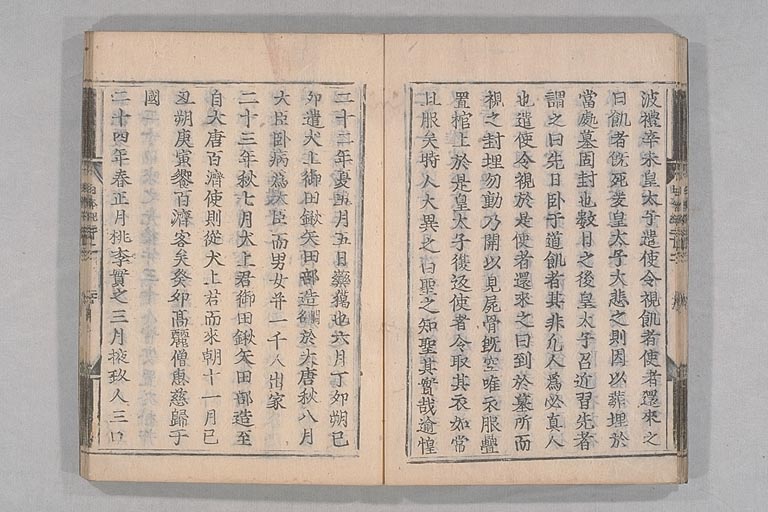 波禮辛未皇太子遣使令視飢者使者還來之
曰飢者既死爰皇太子大悲之則因以葬埋於
當處墓固封也數日之後皇太子召近習先者
謂之曰先日臥于道飢者其非凡人爲必真人
也遣使令視於是使者還來之曰到於墓所而
視之封埋勿動乃開以見屍骨既空唯衣服疊
置棺上於是皇太子復返使者令取其衣如常
且服矣時人大異之曰聖之知聖其實哉逾惶
二十二年夏五月五日藥獵也六月丁夘朔己
夘遣犬上御田鍬矢田部造闕於大唐秋八月
大臣臥病爲大臣而男女并一千人出家
二十三年秋七月犬上君御田鍬矢田部造至
自大唐百濟使則從犬上君而來朝十一月己
丑朔庚寅饗百濟客矣癸夘高麗僧惠慈歸于
國
二十四年春正月桃李實之三月掖玖人三口